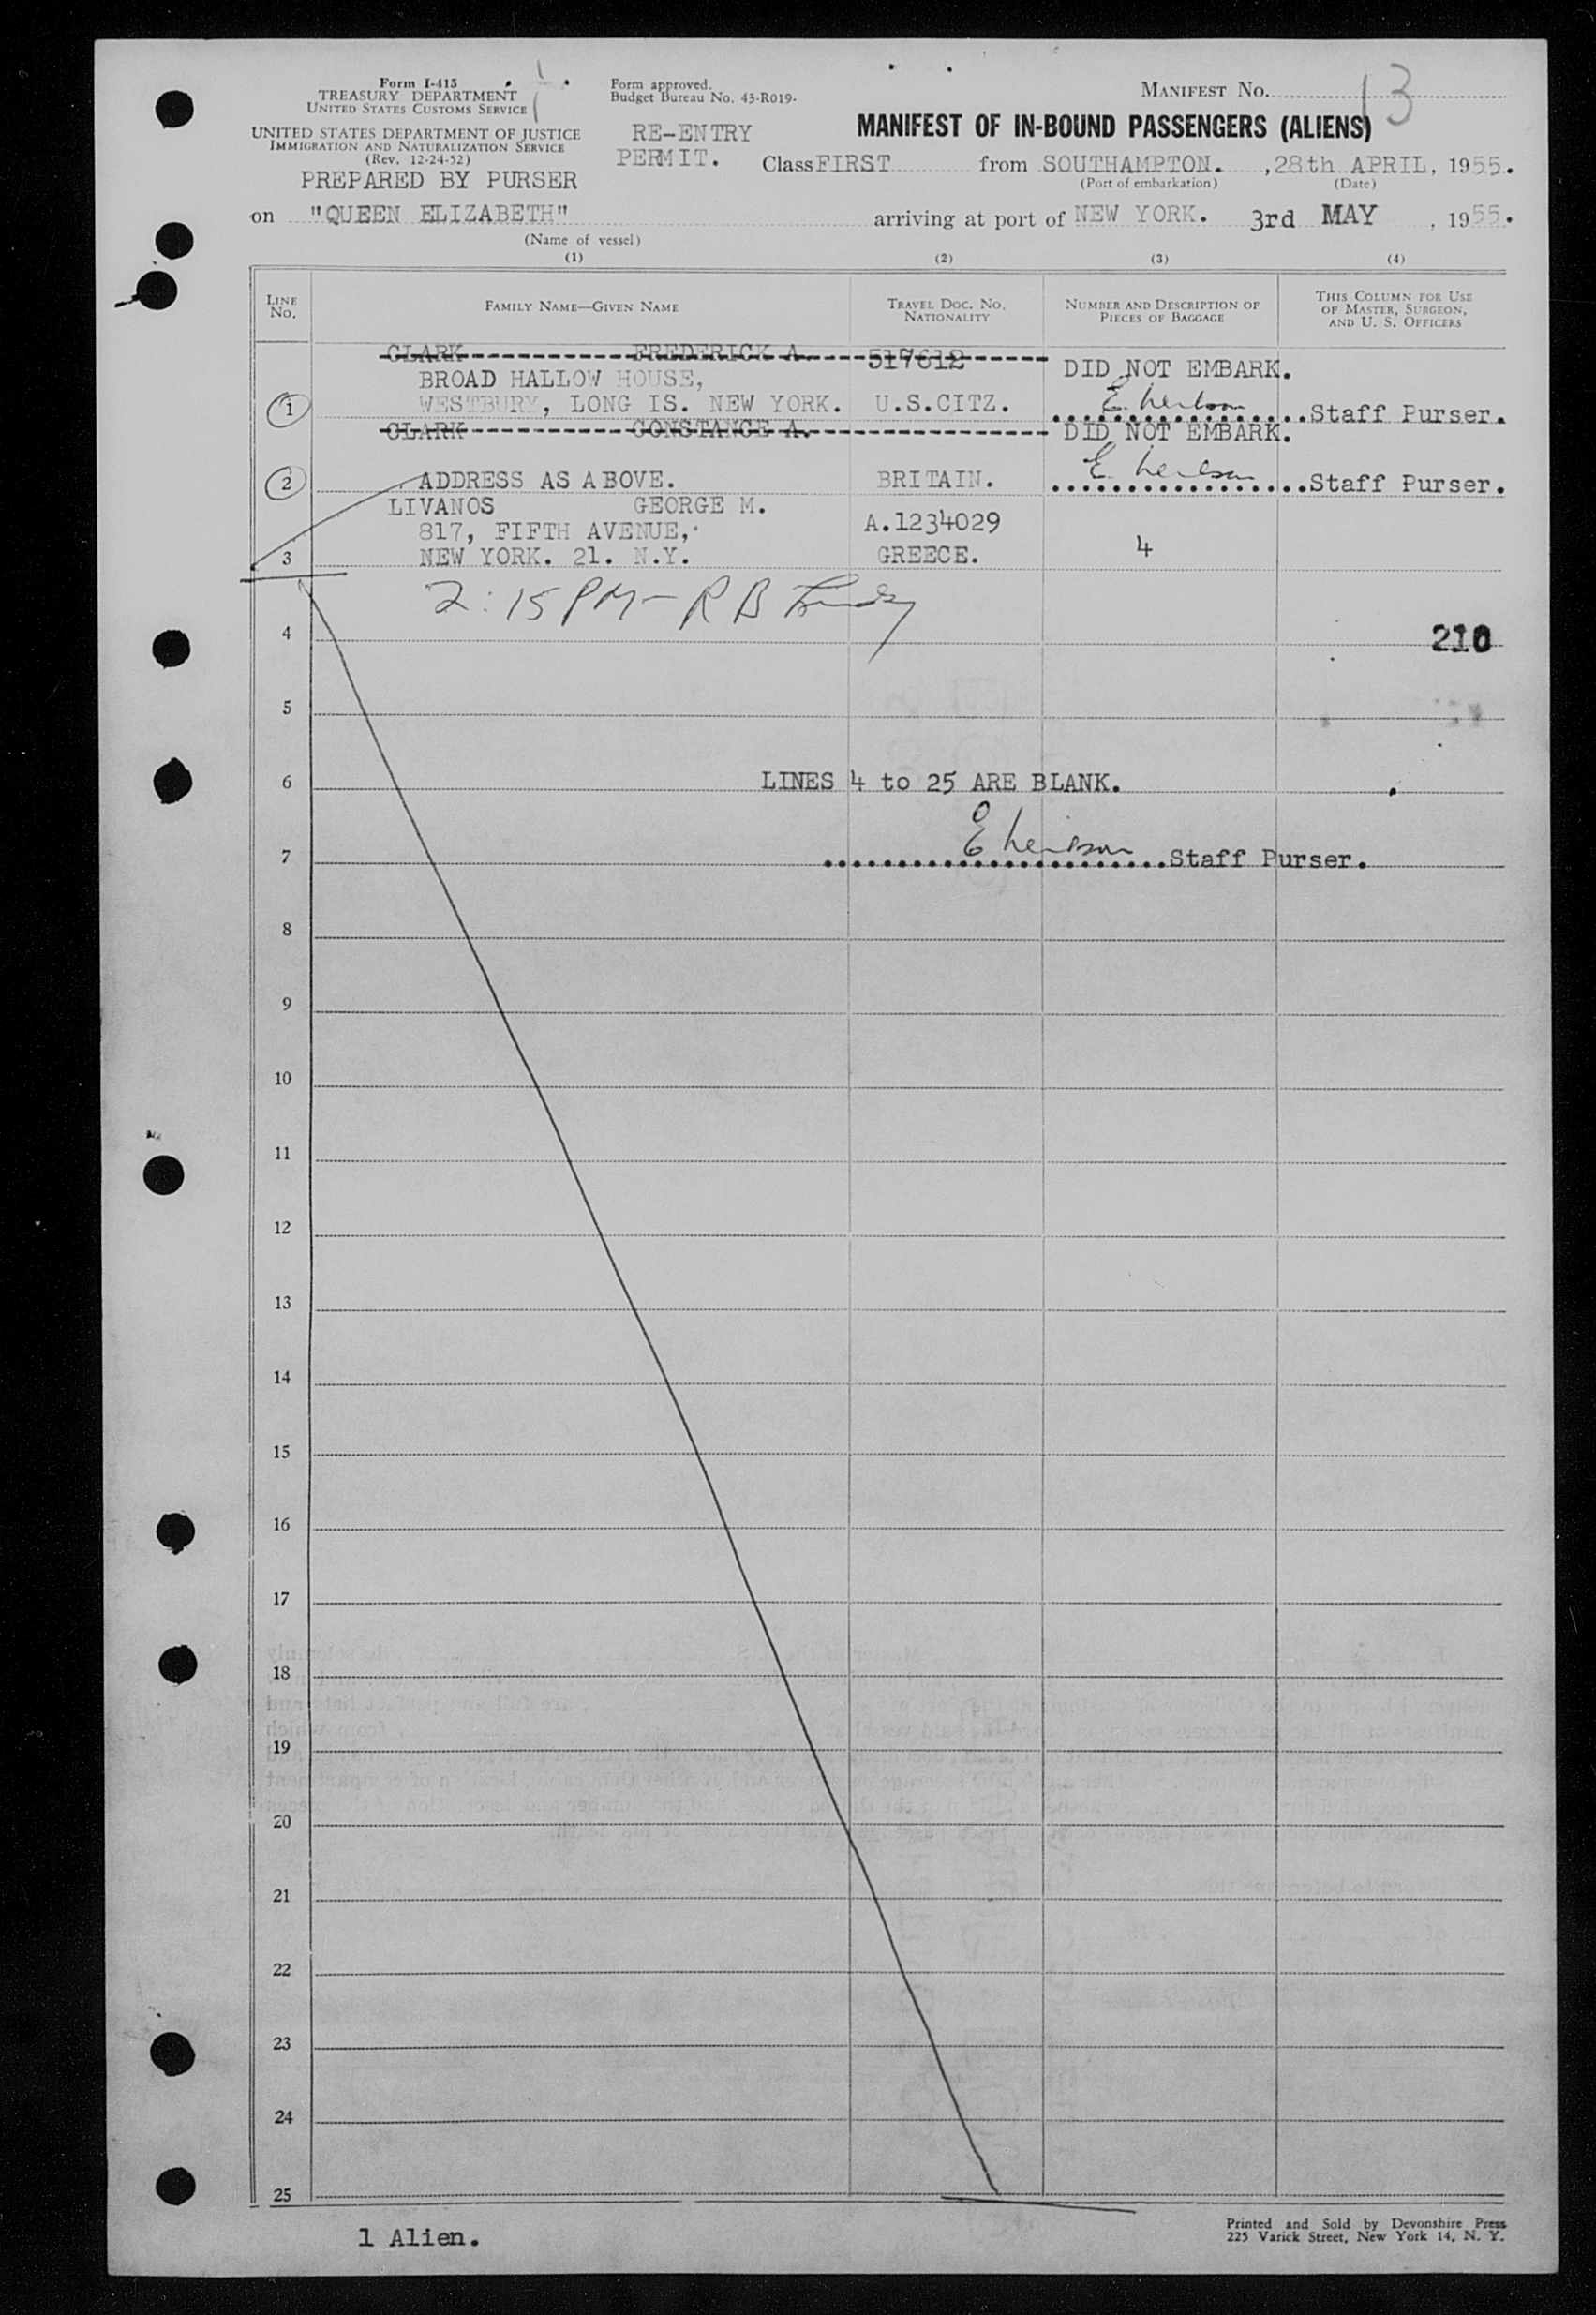 Form I-415
TREASURY DEPARTMENT
UNITED STATES CUSTOMS SERVICE
UNITED STATES DEPARTMENT OF JUSTICE
IMMIGRATION AND NATURALIZATION SERVICE
(Rev. 12-24-52)
PREPARED BY PURSER
Form approved.
Budget Bureau No. 43-R019.
RE-ENTRY
PERMIT.
MANIFEST No. 13
MANIFEST OF IN-BOUND PASSENGERS (ALIENS)
Class FIRST from SOUTHAMPTON. , 28th APRIL, 1955.
(Port of embarkation) (Date)
on "QUEEN ELIZABETH" arriving at port of NEW YORK. 3rd MAY , 1955.
(Name of vessel)
(1) (2) (3) (4)
LINE No. FAMILY NAME—GIVEN NAME TRAVEL DOC. NO. NATIONALITY NUMBER AND DESCRIPTION OF PIECES OF BAGGAGE THIS COLUMN FOR USE OF MASTER, SURGEON, AND U. S. OFFICERS
CLARK FREDERICK A. 517612 DID NOT EMBARK.
BROAD HALLOW HOUSE,
1 WESTBURY, LONG IS. NEW YORK. U.S.CITZ. Staff Purser.
CLARK CONSTANCE A. DID NOT EMBARK.
2 ADDRESS AS ABOVE. BRITAIN. Staff Purser.
LIVANOS GEORGE M. A.1234029
817, FIFTH AVENUE,
3 NEW YORK. 21. N.Y. GREECE. 4
2:15 PM - R B
4 210
5
6 LINES 4 to 25 ARE BLANK.
7 Staff Purser.
8
9
10
11
12
13
14
15
16
17
18
19
20
21
22
23
24
25
1 Alien.
Printed and Sold by Devonshire Press
225 Varick Street, New York 14, N. Y.